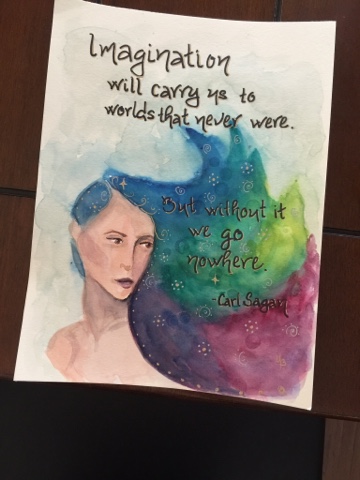 Imagination
will carry us to
worlds that never were.
But without it
we go
nowhere.
-Carl Sagan